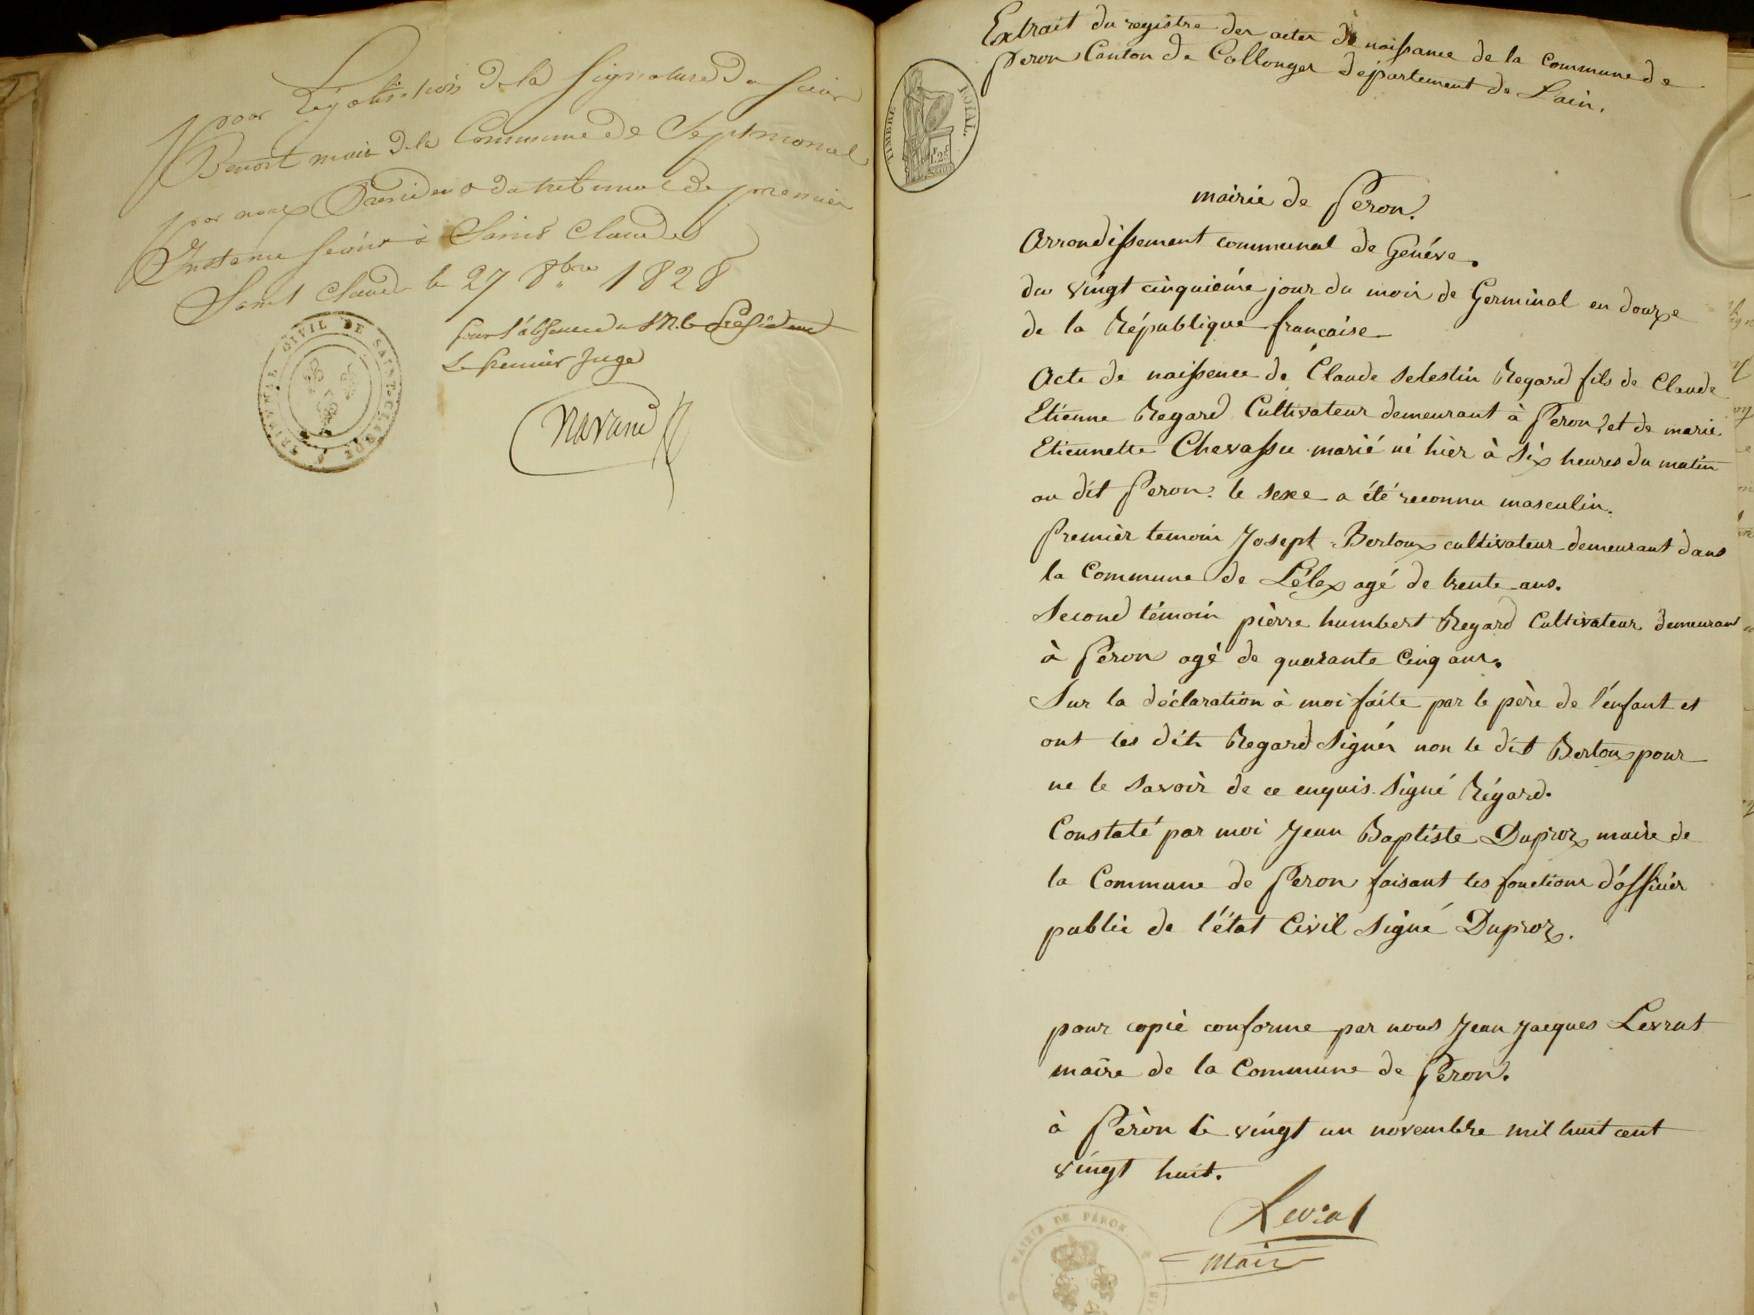 pour Légalisation de la signature du sieur
Benoit maire de la Commune de Septmoncel
par nous Président du tribunal de premier
Instance séant à Saint Claude
Saint Claude le 27 8bre 1828
pour l'absence de Mr le Président
Le premier Juge
TRIBUNAL CIVIL DE SAINT-CLAUDE
Extrait du registre des actes de naissance de la commune de
Peron Canton de Collonges département de L'ain.
TIMBRE ROYAL
mairie de Peron.
Arrondissement communal de Genéve.
du vingt cinquiéme jour du mois de Germinal en douze
de la République française
Acte de naissence de Claude selestin Regard fils de Claude
Etienne Regard Cultivateur demeurant à Peron, et de marie
Etiennette Chevassu marié né hièr à six heures du matin
au dit Peron. le sexe a été reconnu masculin.
Premièr temoin Josept Bertoux cultivateur demeurant dans
la Commune de Lélex agé de trente ans.
Second témoin pièrre humbert Regard Cultivateur demeurant
à Péron agé de quarante Cinq ans.
Sur la déclaration à moi faite par le père de l'énfant et
ont les dits Regard Signés non le dit Bertoux pour
ne le savoir de ce enquis. Signé Régard.
Constaté par moi Jean Baptiste Duproz maire de
la Commune de Peron faisant les fonctions d'officiér
public de l'état Civil Signé Duproz.
pour copiè conforme par nous Jean Jacques Levrat
maire de la Commune de Péron.
à Pèron le vingt un novembre mil huit cent
vingt huit.
Levrat
Maire
MAIRIE DE PÉRON